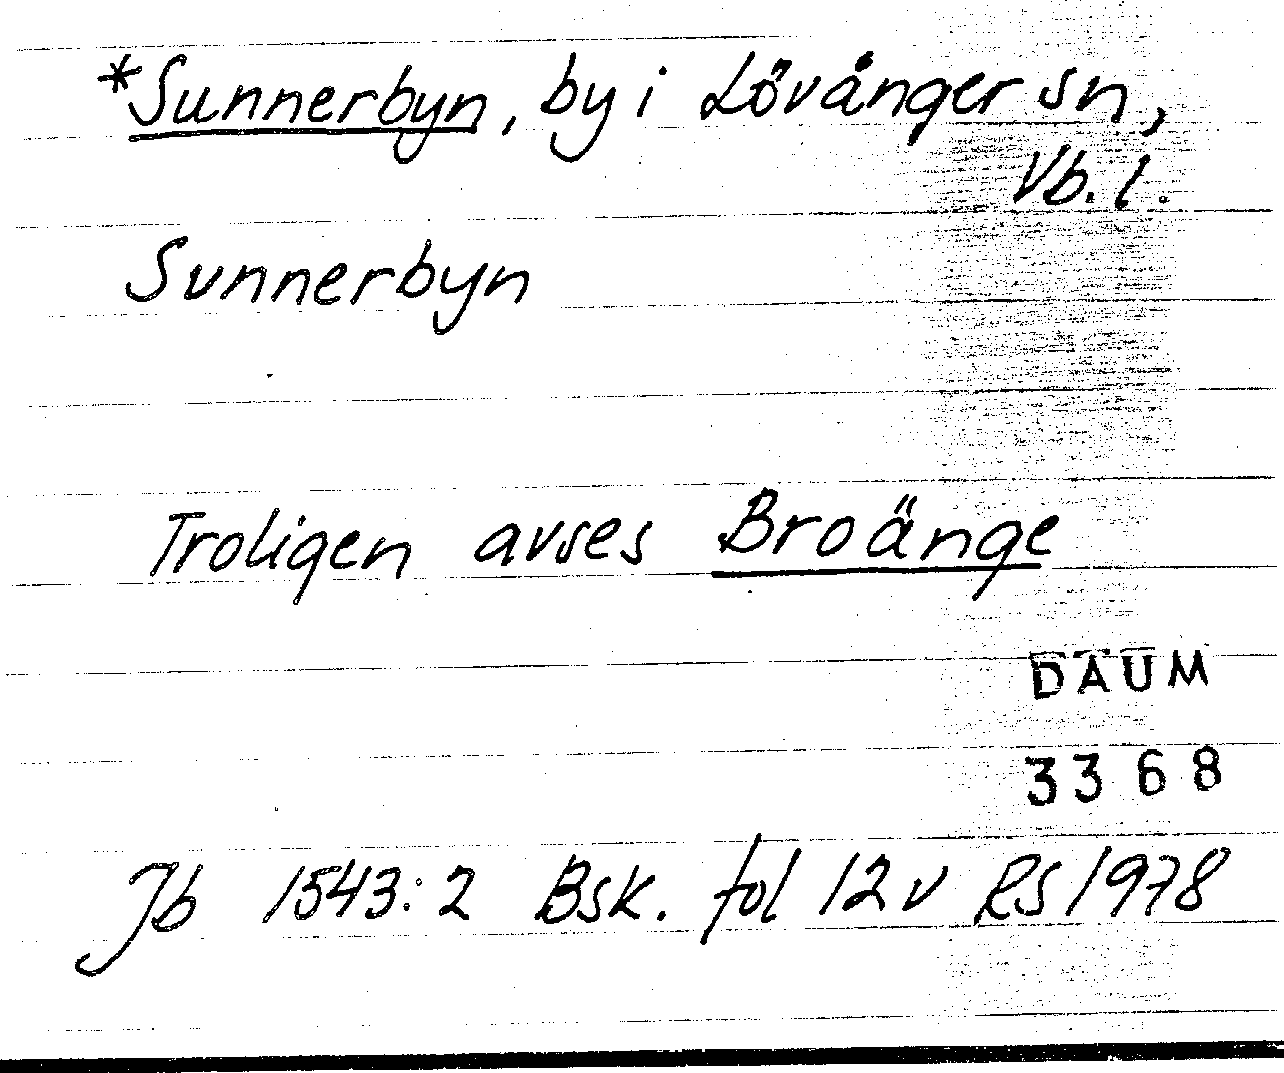 *Sunnerbyn, by i Lövånger sn,
Vb. l.
Sunnerbyn
Troligen avses Broänge
DAUM
3368
Jb 1543:2 Bsk. fol 12 v RS 1978